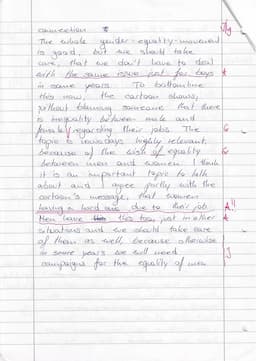 connection
The whole gender-equality-movement
is good, but we should take
care, that we don't have to deal
with the same issue just for boys
in some years. To bottomline
this now, the cartoon shows,
without blaming someone that there
is inequality between male and
female regarding their jobs. The
topic is nowadays highly relevant
because of the wish of equality
between men and women. I think
it is an important topic to talk
about and I agree partly with the
cartoon's message, that women
having a hard one due to their job.
Men have this too, just in other
situations and we should take care
of them as well, because otherwise
in some years we will need
campaigns for the equality of men